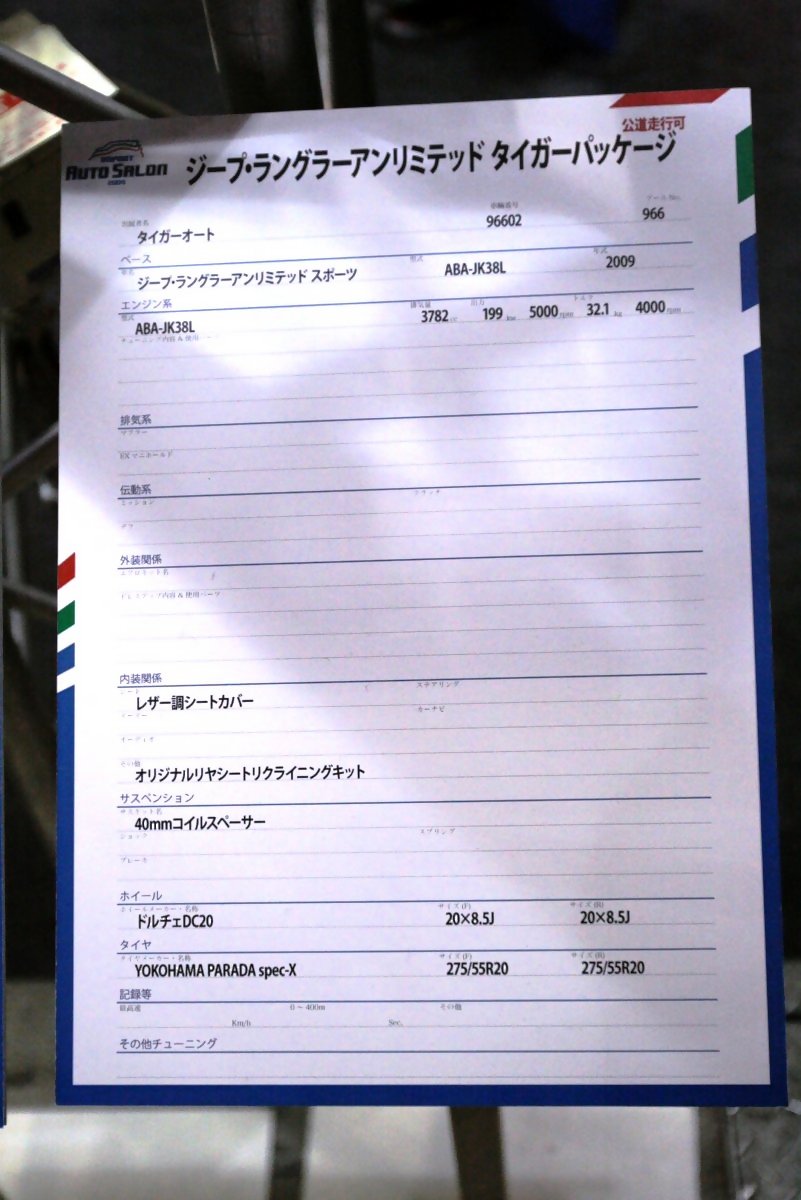 公道走行可
AUTO SALON
ジープ・ラングラーアンリミテッド タイガーパッケージ
出展者名 車輌番号 ブース No.
タイガーオート 96602 966
ベース
車名 型式 年式
ジープ・ラングラーアンリミテッド スポーツ ABA-JK38L 2009
エンジン系
型式 排気量 出力 トルク
ABA-JK38L 3782 cc 199 5000 rpm 32.1 kg 4000 rpm
チューニング内容 & 使用
排気系
マフラー
EXマニホールド
伝動系
ミッション クラッチ
デフ
外装関係
エアロキット名
ドレスアップ内容 & 使用パーツ
内装関係
シート ステアリング
レザー調シートカバー
メーター カーナビ
オーディオ
その他
オリジナルリヤシートリクライニングキット
サスペンション
サスキット名
40mmコイルスペーサー
ショック スプリング
ブレーキ
ホイール
ホイールメーカー・名称 サイズ (F) サイズ (R)
ドルチェDC20 20×8.5J 20×8.5J
タイヤ
タイヤメーカー・名称 サイズ (F) サイズ (R)
YOKOHAMA PARADA spec-X 275/55R20 275/55R20
記録等
最高速 0～400m その他
Km/h Sec.
その他チューニング